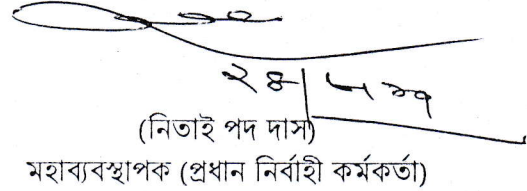 (নিতাই পদ দাস)
মহাব্যবস্থাপক (প্রধান নির্বাহী কর্মকর্তা)